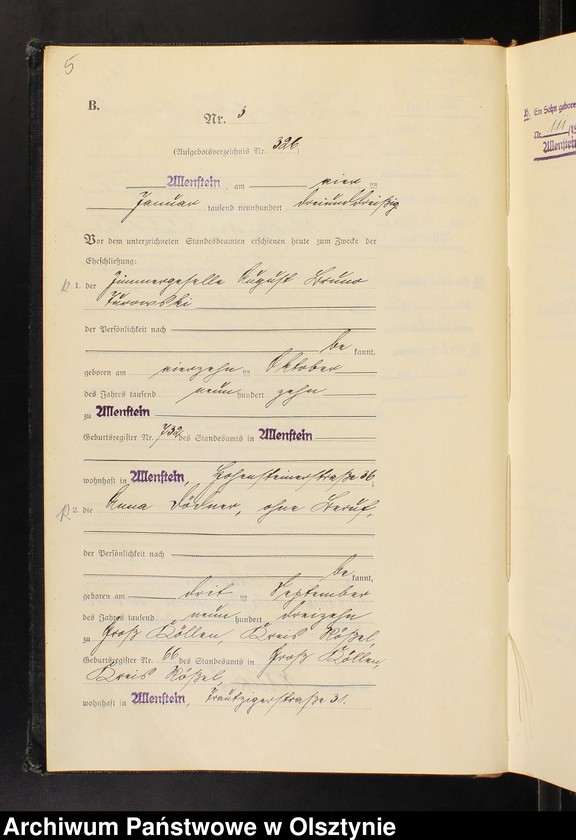 5
B.
Nr. 3
(Aufgebotsverzeichnis Nr. 326)
Allenstein, am vier ten
Januar tausend neunhundert dreiunddreißig
Vor dem unterzeichneten Standesbeamten erschienen heute zum Zwecke der
Eheschließung:
1. der Zimmergeselle August Bruno
Turowski
der Persönlichkeit nach
be kannt,
geboren am vierzehn ten Oktober
des Jahres tausend neun hundert zehn
zu Allenstein
Geburtsregister Nr. 732 des Standesamts in Allenstein
wohnhaft in Allenstein, Hohensteinerstraße 36.
2. die Anna ohne Beruf,
der Persönlichkeit nach
be kannt,
geboren am drit ten September
des Jahres tausend neun hundert dreizehn
zu Groß Köllen, Kreis Rößel
Geburtsregister Nr. 66 des Standesamts in Groß Köllen
Kreis Rößel,
wohnhaft in Allenstein, Trautzigerstraße 31.
Ein Sohn gebor
Nr. 111/19
Allenstein
Archiwum Państwowe w Olsztynie